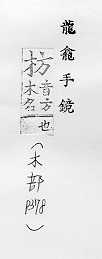 龍龕手鏡
枋音方
木名也
(木部
P378)